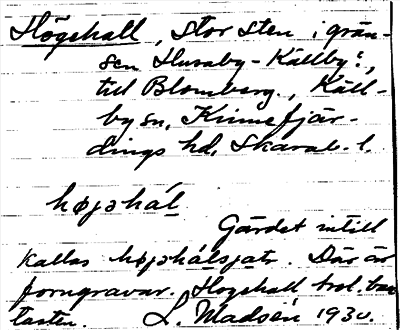 Högehall, stor sten i grän-
sen Husaby-Källby:,
till Blomberg., Käll-
by sn, Kinnefjär-
dings hd, Skarab. l.
høgəhál
Gärdet intill
kallas
Där är
forngravar. Högehall trol. bau
tasten. L. Madsén 1930.